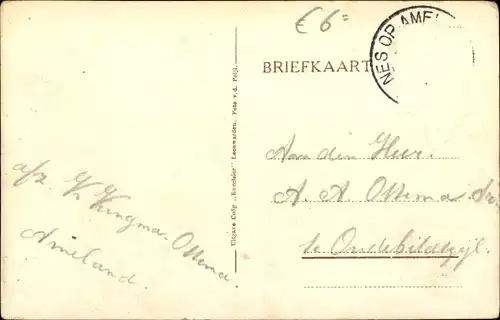 € 6=
NES OP AMEL
BRIEFKAART
Aan den Heer.
A. A Ottema
te Oudebildtzijl.
afz. Kingma-Ottema
Ameland.
Uitgave Coöp „Excelsior" Leeuwarden. Foto v.d. Feijl.